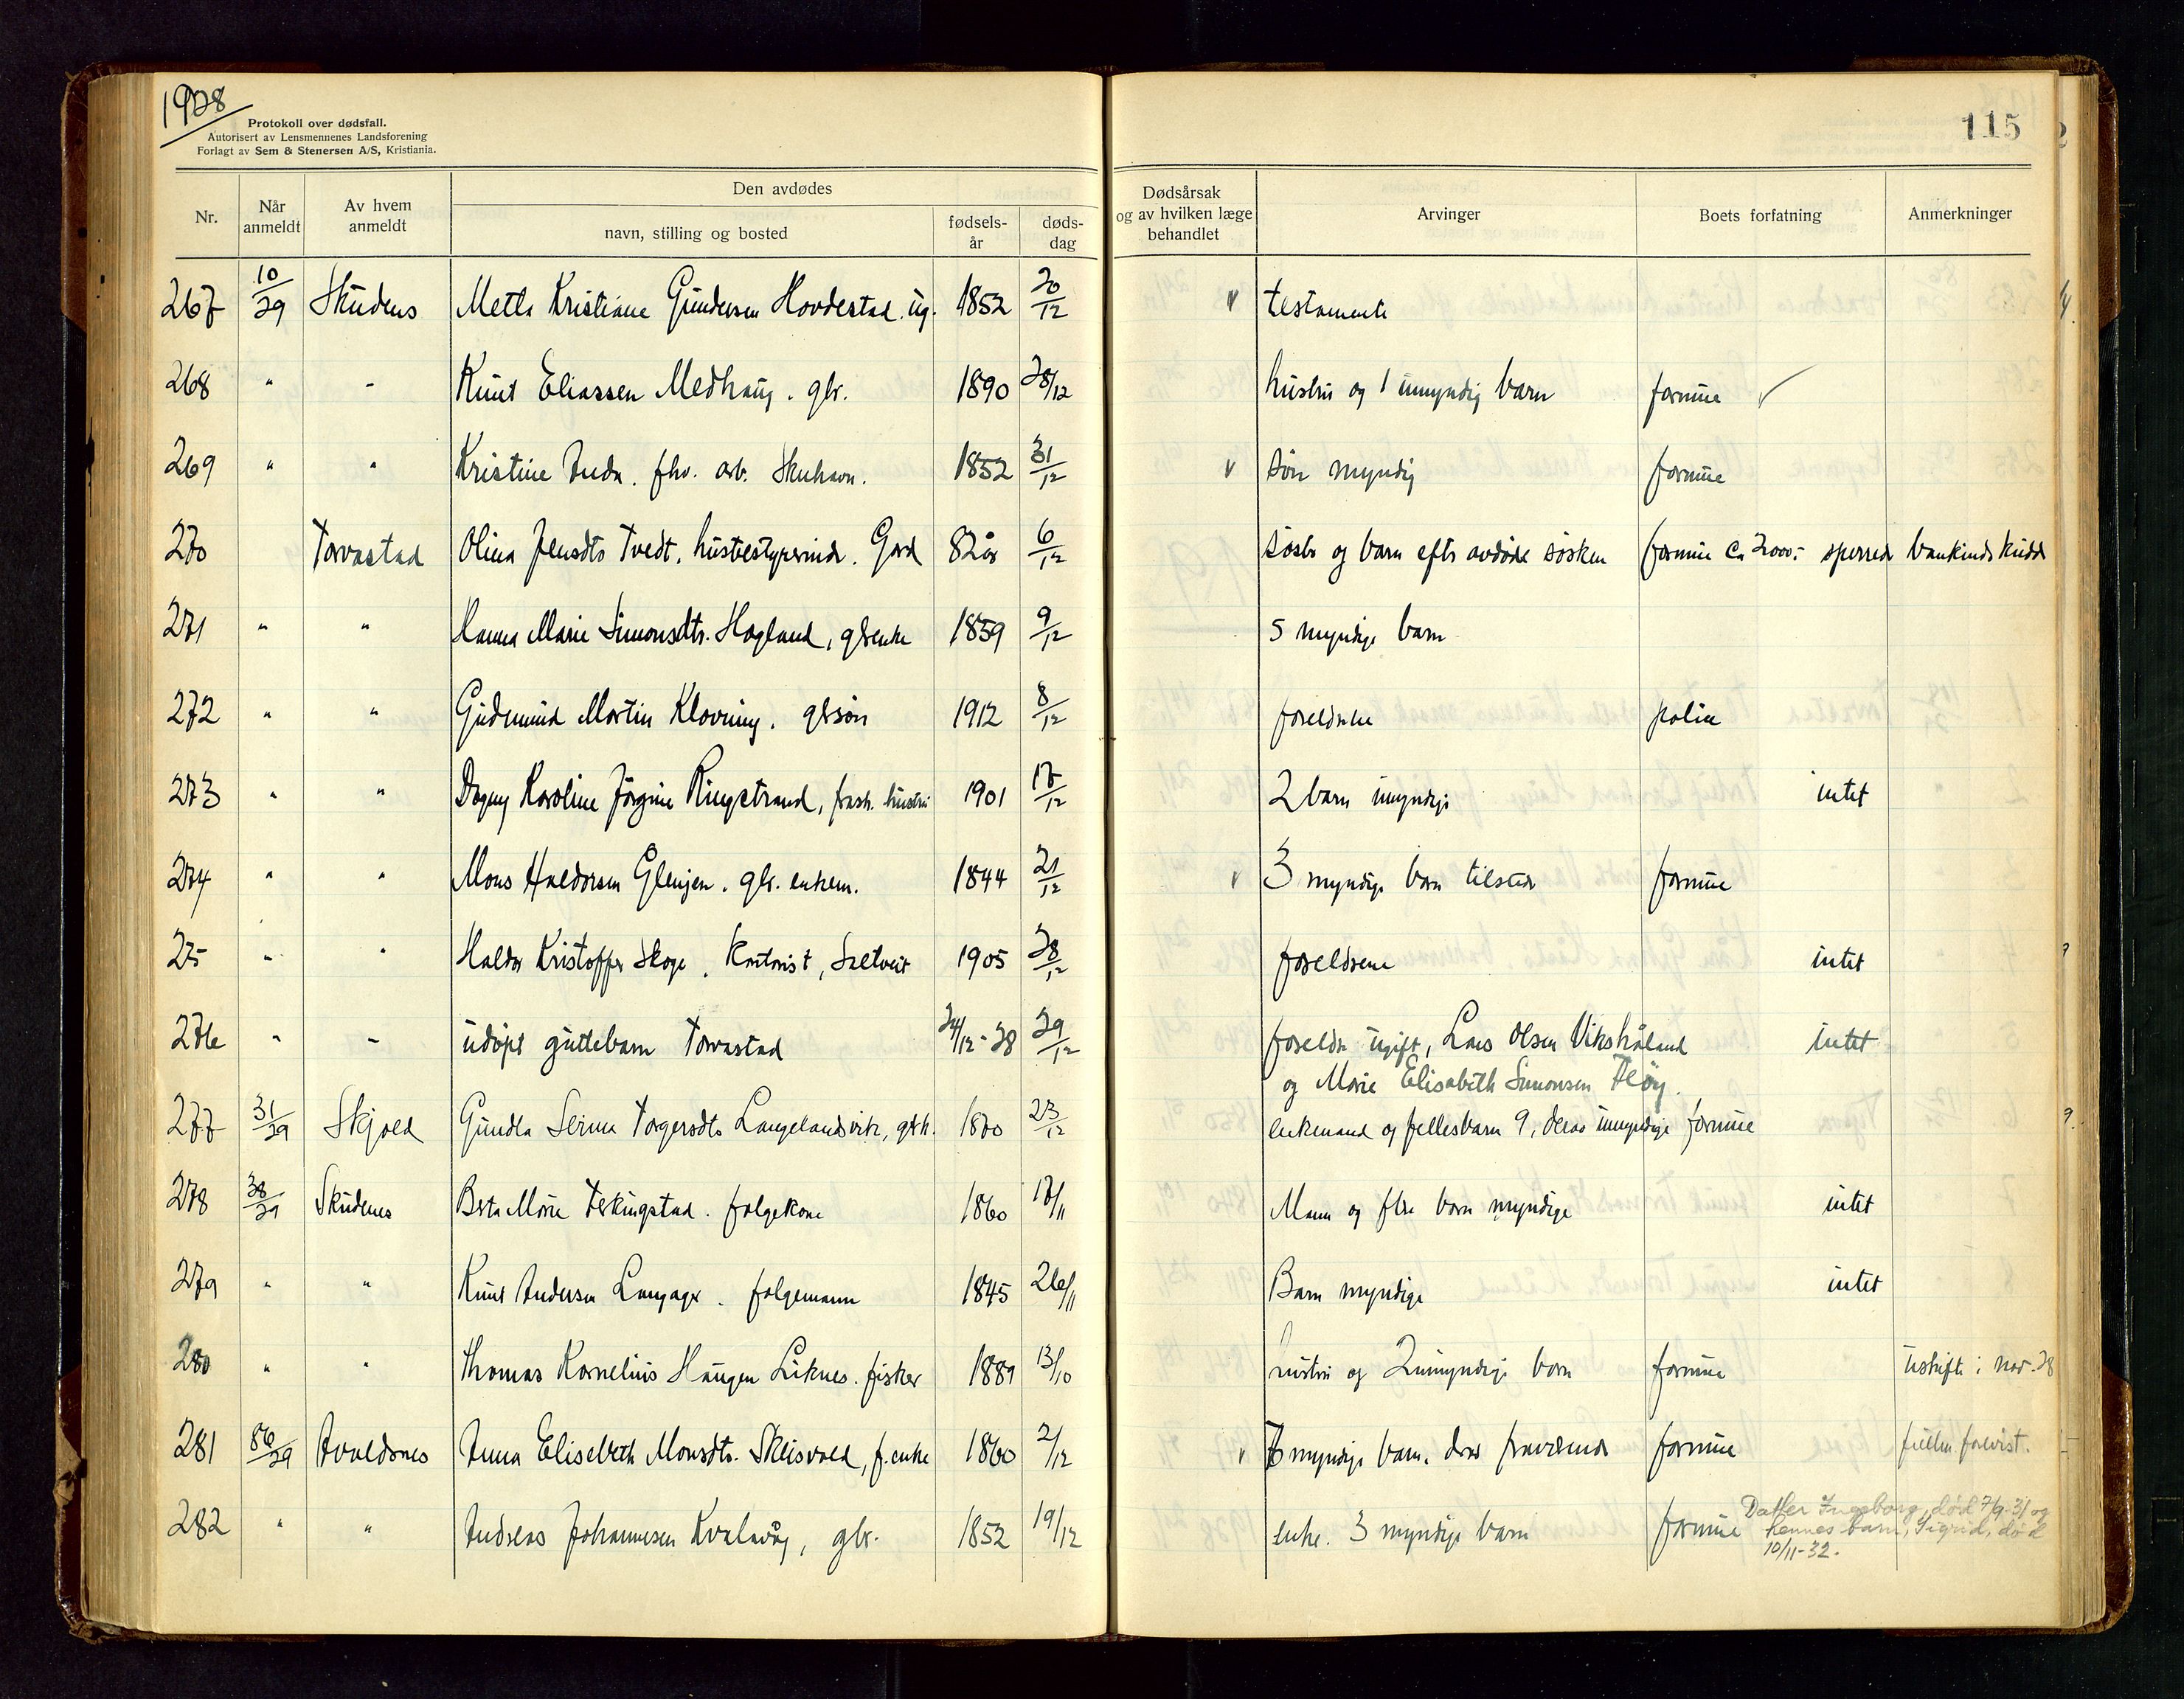 1928
Protokoll over dødsfall.
Autorisert av Lensmennenes Landsforening
Forlagt av Sem & Stenersen A/S, Kristiania.
115
Nr. Når anmeldt Av hvem anmeldt Den avdødes navn, stilling og bosted fødsels-år døds-dag Dødsårsak og av hvilken læge behandlet Arvinger Boets forfatning Anmerkninger
267 10/29 Skudenes Mette Kristiane Gundersen Hovdestad. ug. 1852 20/12 v testamente
268 " - Knut Eliassen Medhaug. gbr. 1890 28/12 hustru og 1 umyndig barn formue
269 " " Kristine fhv. arb. Skuhavn. 1852 31/12 v søn myndig formue
270 Torvastad Olina Jensdtr Tvedt. husbestyrerinde. Gard 82 år 6/12 søster og barn efter avdøde søsken formue ca 2000,- sperred bankindskudd
271 " " Hanna Marie Simonsdtr. Hagland, gbrenke 1859 9/12 5 myndige barn
272 " " Gudmund Martin Klovning. gbrsøn 1912 8/12 foreldrene
273 " " Dagny Karoline Jørgine Ringstrand, hustru 1901 17/12 2 barn umyndige intet
274 " " Mons Haldorsen Glenjen. gbr. enkem. 1844 21/12 v 3 myndige barn tilstede formue
275 " " Haldor Kristoffer Skoge, Kontorist, Saltveit 1905 28/12 foreldrene intet
276 " - udøpt guttebarn Torvastad 24/12-28 29/12 foreldre ugift, Lars Olsen Vikshåland intet
og Marie Elisabeth Simonsen Fløy.
277 31/29 Skjold Gundla Serine Torgersdtr Langelandsvik, gbrh. 1870 23/12 enkemand og fellesbarn 9, derav umyndige formue
278 38/29 Skudenes Berta Marie folgekone 1860 17/11 Mann og flere barn myndige intet
279 " " Knut Andersen Langaker. folgemann 1845 26/11 Barn myndige intet
280 " " Thomas Kornelius Haugen Liknes. fisker 1889 13/10 hustru og 2 umyndige barn formue uskifte i nov. 28
281 86/29 Avaldsnes Anna Elisebeth Monsdtr. Skeisvold, f. enke 1860 2/12 v 7 myndige barn, derav fraværende formue
282 " " Andreas Johannesen Kvalavåg, gbr. 1852 19/12 enke. 3 myndige barn formue Datter Ingeborg, død 7/9-31 og
hennes barn, Sigrid, død
10/11-32.